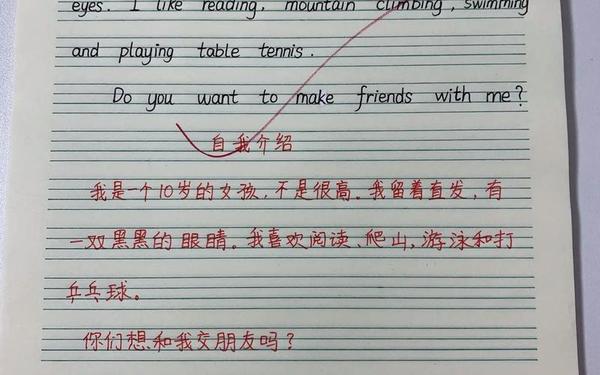 eyes. I like reading, mountain climbing, swimming
and playing table tennis.
Do you want to make friends with me?
自我介绍
我是一个10岁的女孩,不是很高。我留着直发,有
一双黑黑的眼睛。我喜欢阅读、爬山,游泳和打
乒乓球。
你们想和我交朋友吗?